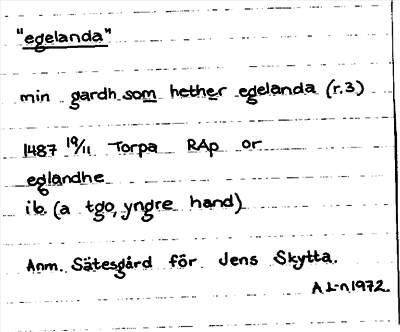 "egelanda"
min gardh som hether egelanda (r.3)
1487 19/11 Torpa RAp or
eglandhe
ib. (a tgo, yngre hand)
Anm. Sätesgård för Jens Skytta.
A L-n 1972.